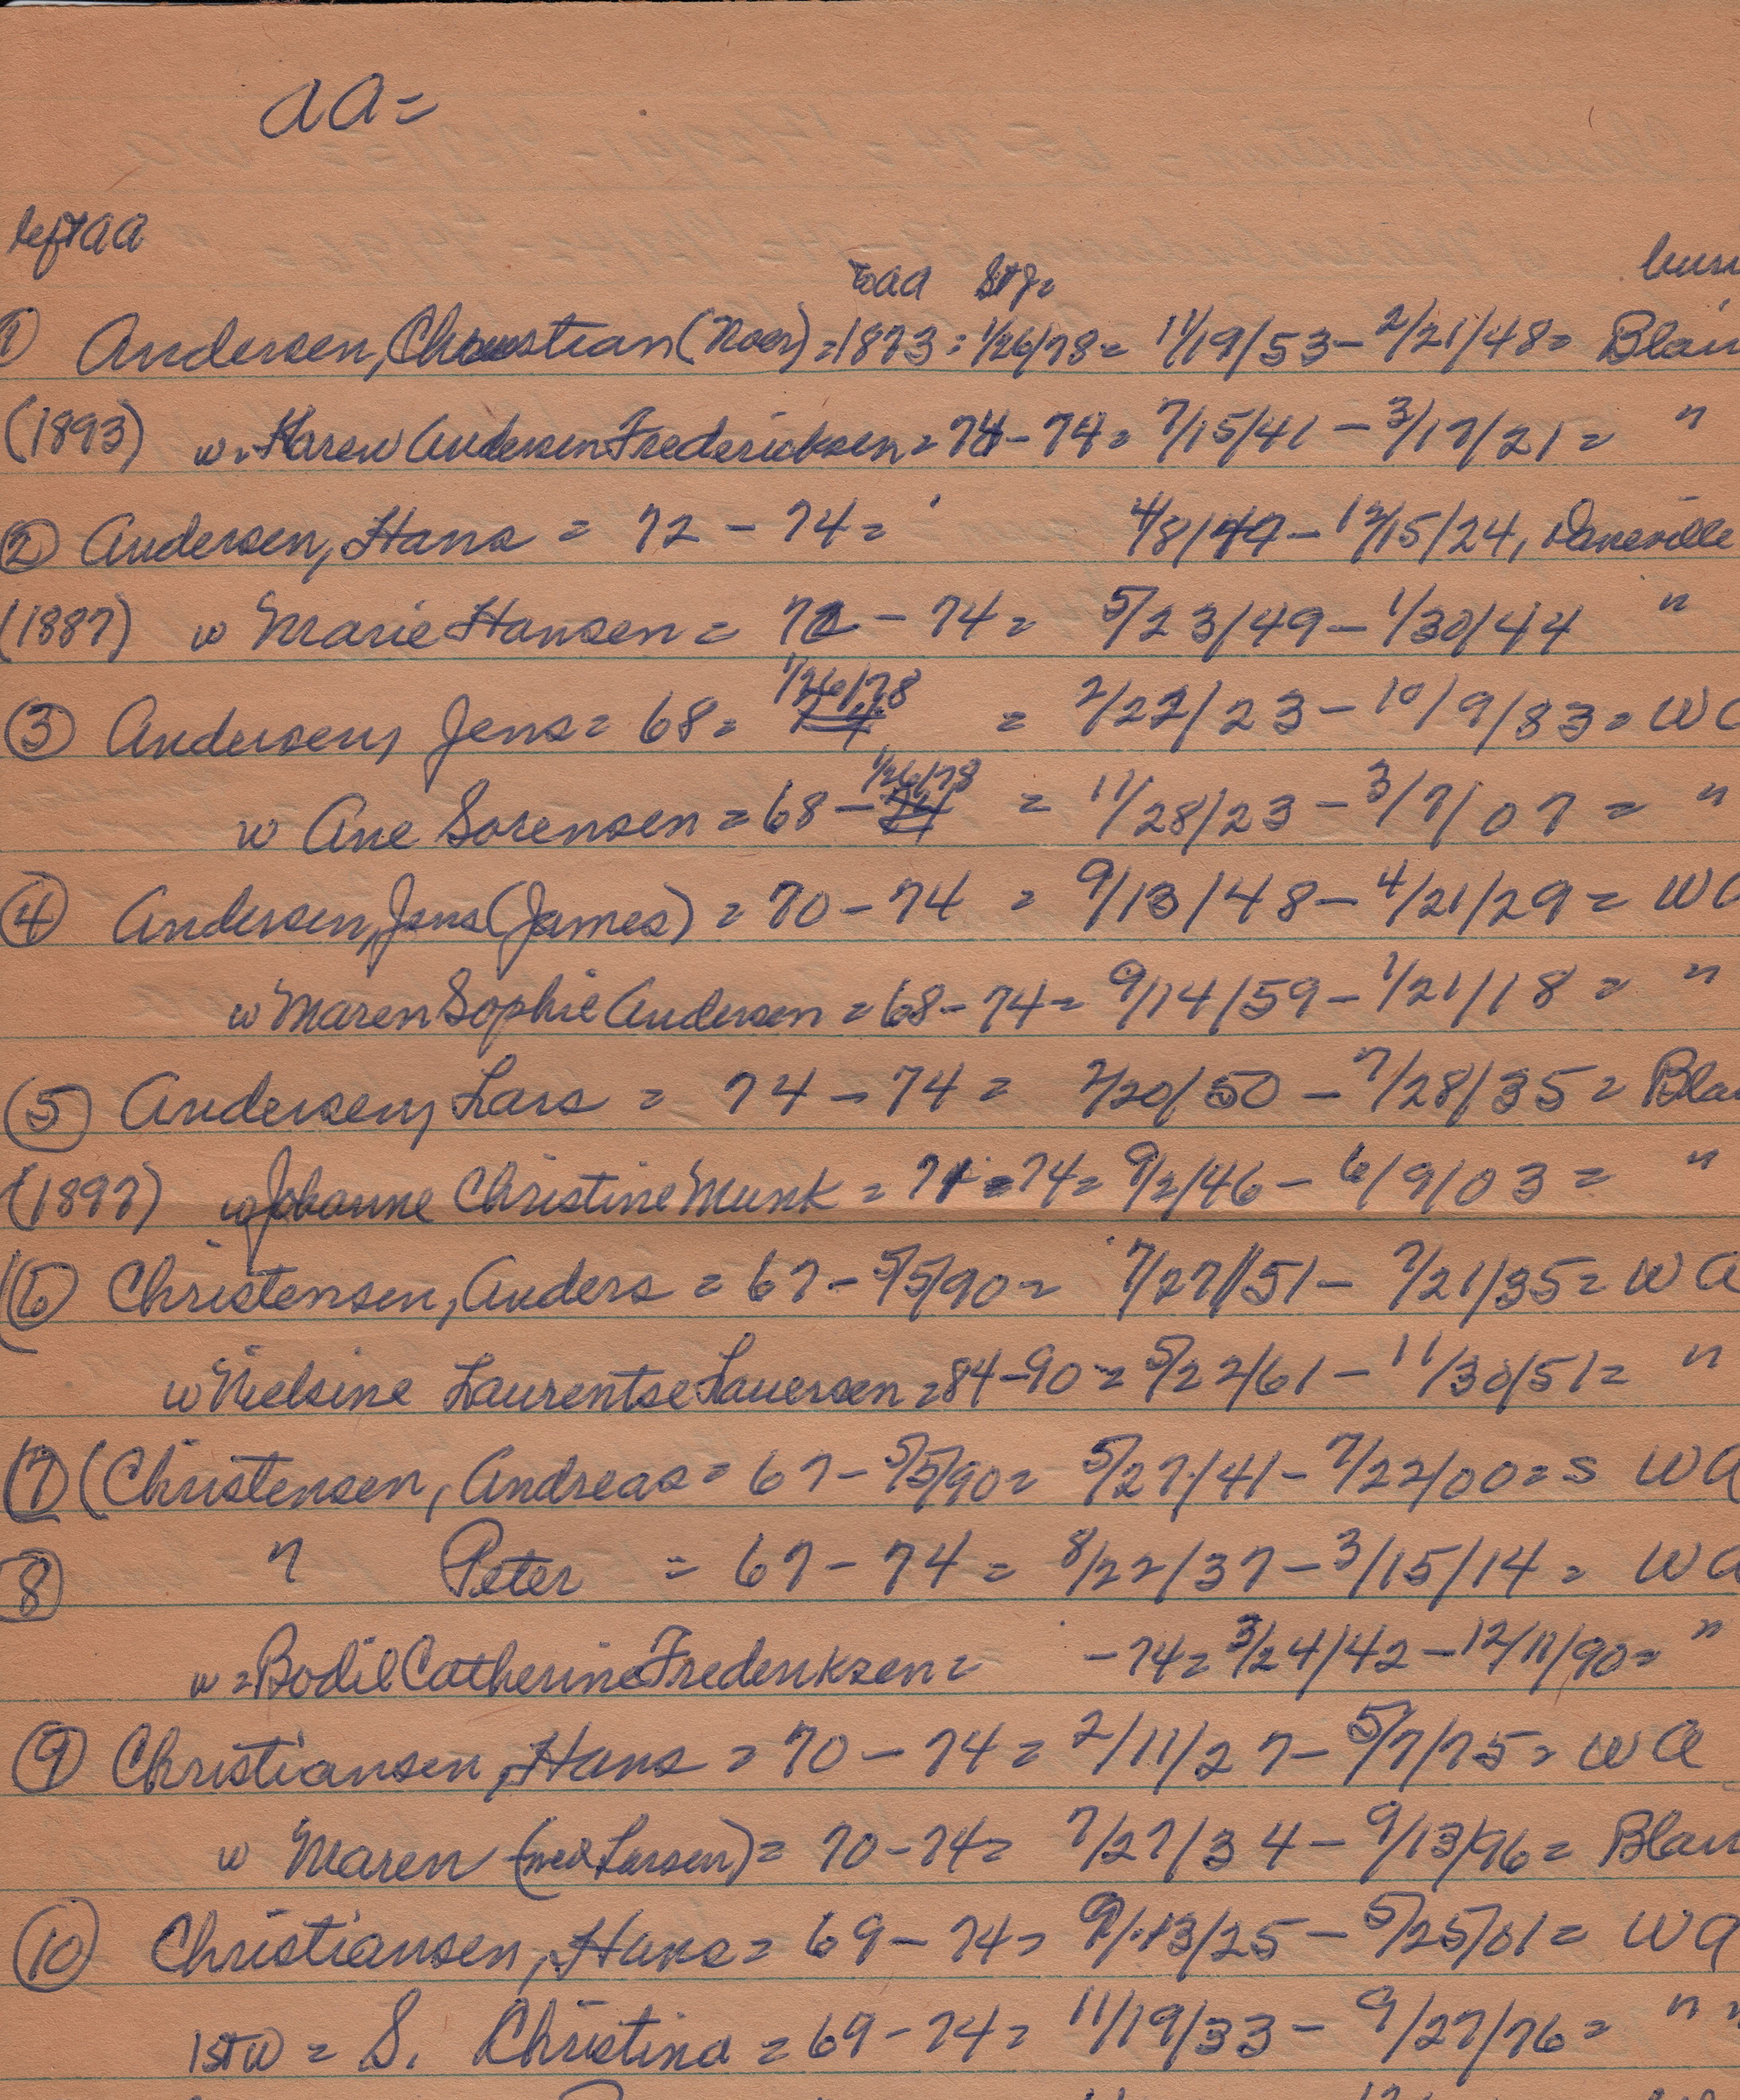 aa=
left aa
to aa
buri
① Andersen, Christian (Noer) = 1873 = 1/26/78 = 11/19/53 - 2/21/48 = Blair
(1893) w. Karen Andersen Fredericksen = 74 - 74 = 7/15/41 - 3/17/21 = "
② Andersen, Hans = 72 - 74 = 4/8/49 - 12/15/24, Daneville
(1887) w Marie Hansen = 72 - 74 = 5/23/49 - 1/30/44 "
③ Andersen, Jens = 68 = 1/26/78 = 2/22/23 - 10/9/83 = W a
w Ane Sorensen = 68 - 1/26/78 = 11/28/23 - 3/7/07 = "
④ Andersen, Jens (James) = 70 - 74 = 9/13/48 - 4/21/29 = W a
w Maren Sophie Andersen = 68 - 74 = 9/14/59 - 1/21/18 = "
⑤ Andersen, Lars = 74 - 74 = 2/20/50 - 7/28/35 = Bla
(1897) w Johanne Christine Munk = 71 - 74 = 9/2/46 - 6/9/03 = "
⑥ Christensen, Anders = 67 - 5/5/90 = 7/27/51 - 7/21/35 = W a
w Nielsine Laurentse Lauersen = 84 - 90 = 5/22/61 - 11/30/51 = "
⑦ (Christensen, Andreas = 67 - 5/5/90 = 5/27/41 - 7/22/00 = s W a
⑧ " Peter = 67 - 74 = 8/22/37 - 3/15/14 = W a
w = Bodil Catherine Frederiksen = - 74 = 3/24/42 - 12/11/90 = "
⑨ Christiansen, Hans = 70 - 74 = 2/11/27 - 5/7/75 = W a
w Maren (ned Larsen) = 70 - 74 = 7/27/34 - 9/13/96 = Blair
⑩ Christiansen, Hans = 69 - 74 = 9/13/25 - 5/25/01 = W a
1st w = S. Christina = 69 - 74 = 11/19/33 - 9/27/76 = " "